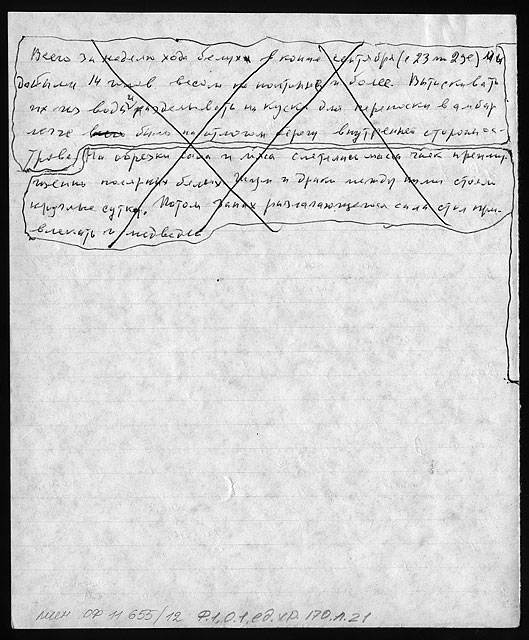 Всего за неделю хода белухи в конце сентября (с 23 по 29е) мы
добыли 14 голов весом по полтонны и более. Вытаскивать
их из воды и разделывать на куски для переноски в амбар
легче было на отлогом берегу внутренней стороны ос-
трова. На обрезки сала и мяса слетались массы чаек преиму-
щественно полярных белых. Шум и драки между ними стояли
круглые сутки. Потом запах разлагающегося сала стал при-
влекать и медведей
ОФ 11655/12 Ф.1, О.1, ед.хр. 170. л. 21